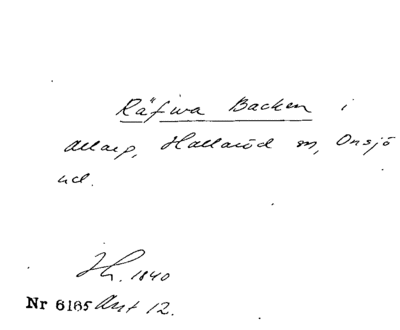 Räfwa Backen i
Allarp, Hallaröd sn, Onsjö
hd.
Lh. 1840
Nr 6165 Akt 12.